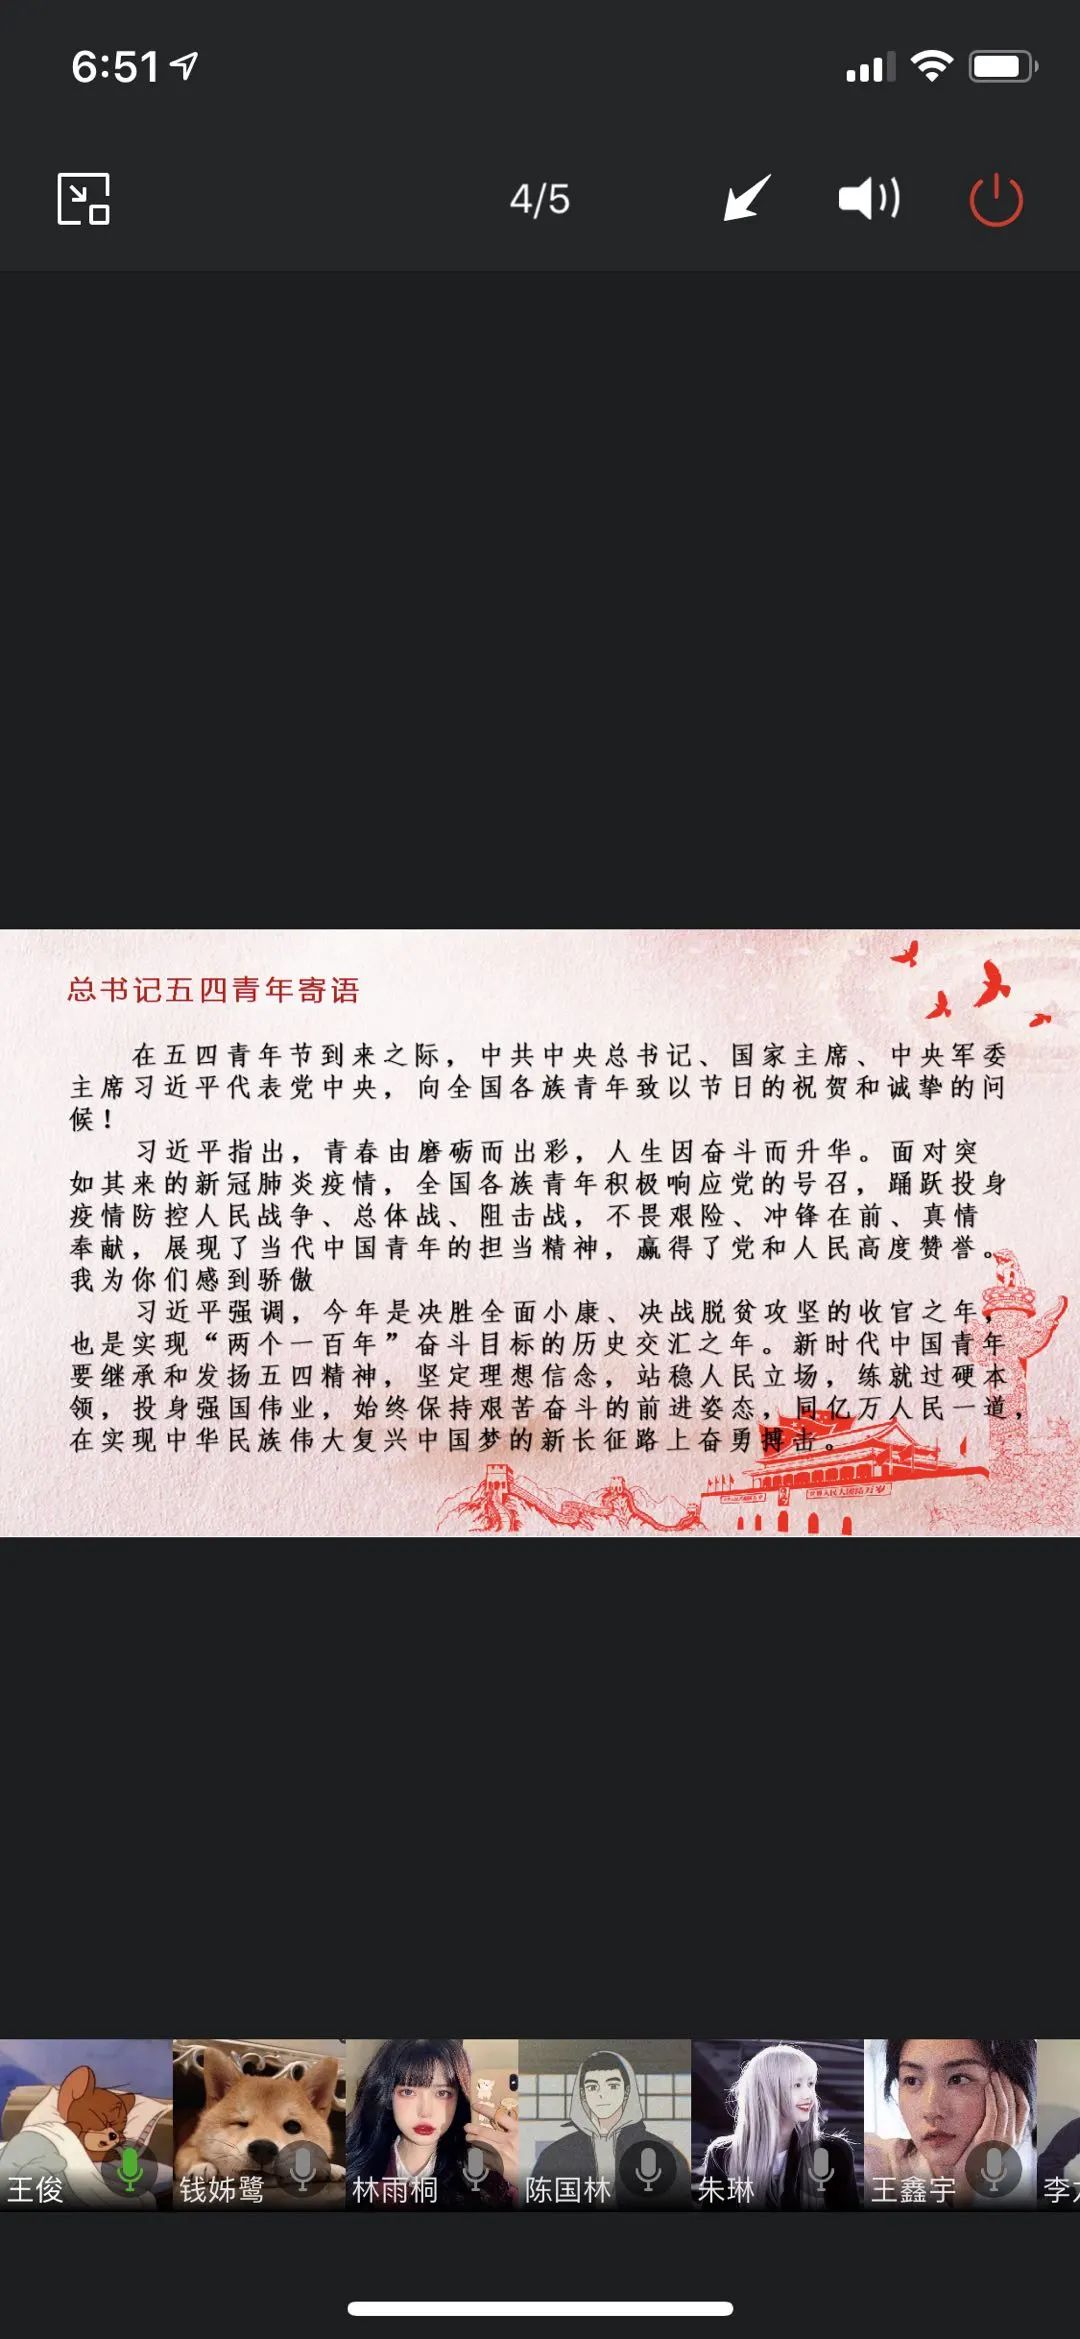 6:51
4/5
总书记五四青年寄语
在五四青年节到来之际，中共中央总书记、国家主席、中央军委
主席习近平代表党中央，向全国各族青年致以节日的祝贺和诚挚的问
候！
习近平指出，青春由磨砺而出彩，人生因奋斗而升华。面对突
如其来的新冠肺炎疫情，全国各族青年积极响应党的号召，踊跃投身
疫情防控人民战争、总体战、阻击战，不畏艰险、冲锋在前、真情
奉献，展现了当代中国青年的担当精神，赢得了党和人民高度赞誉。
我为你们感到骄傲
习近平强调，今年是决胜全面小康、决战脱贫攻坚的收官之年，
也是实现“两个一百年”奋斗目标的历史交汇之年。新时代中国青年
要继承和发扬五四精神，坚定理想信念，站稳人民立场，练就过硬本
领，投身强国伟业，始终保持艰苦奋斗的前进姿态，同亿万人民一道，
在实现中华民族伟大复兴中国梦的新长征路上奋勇搏击。
世界人民大团结万岁
王俊
钱姊鹭
林雨桐
陈国林
朱琳
王鑫宇
李